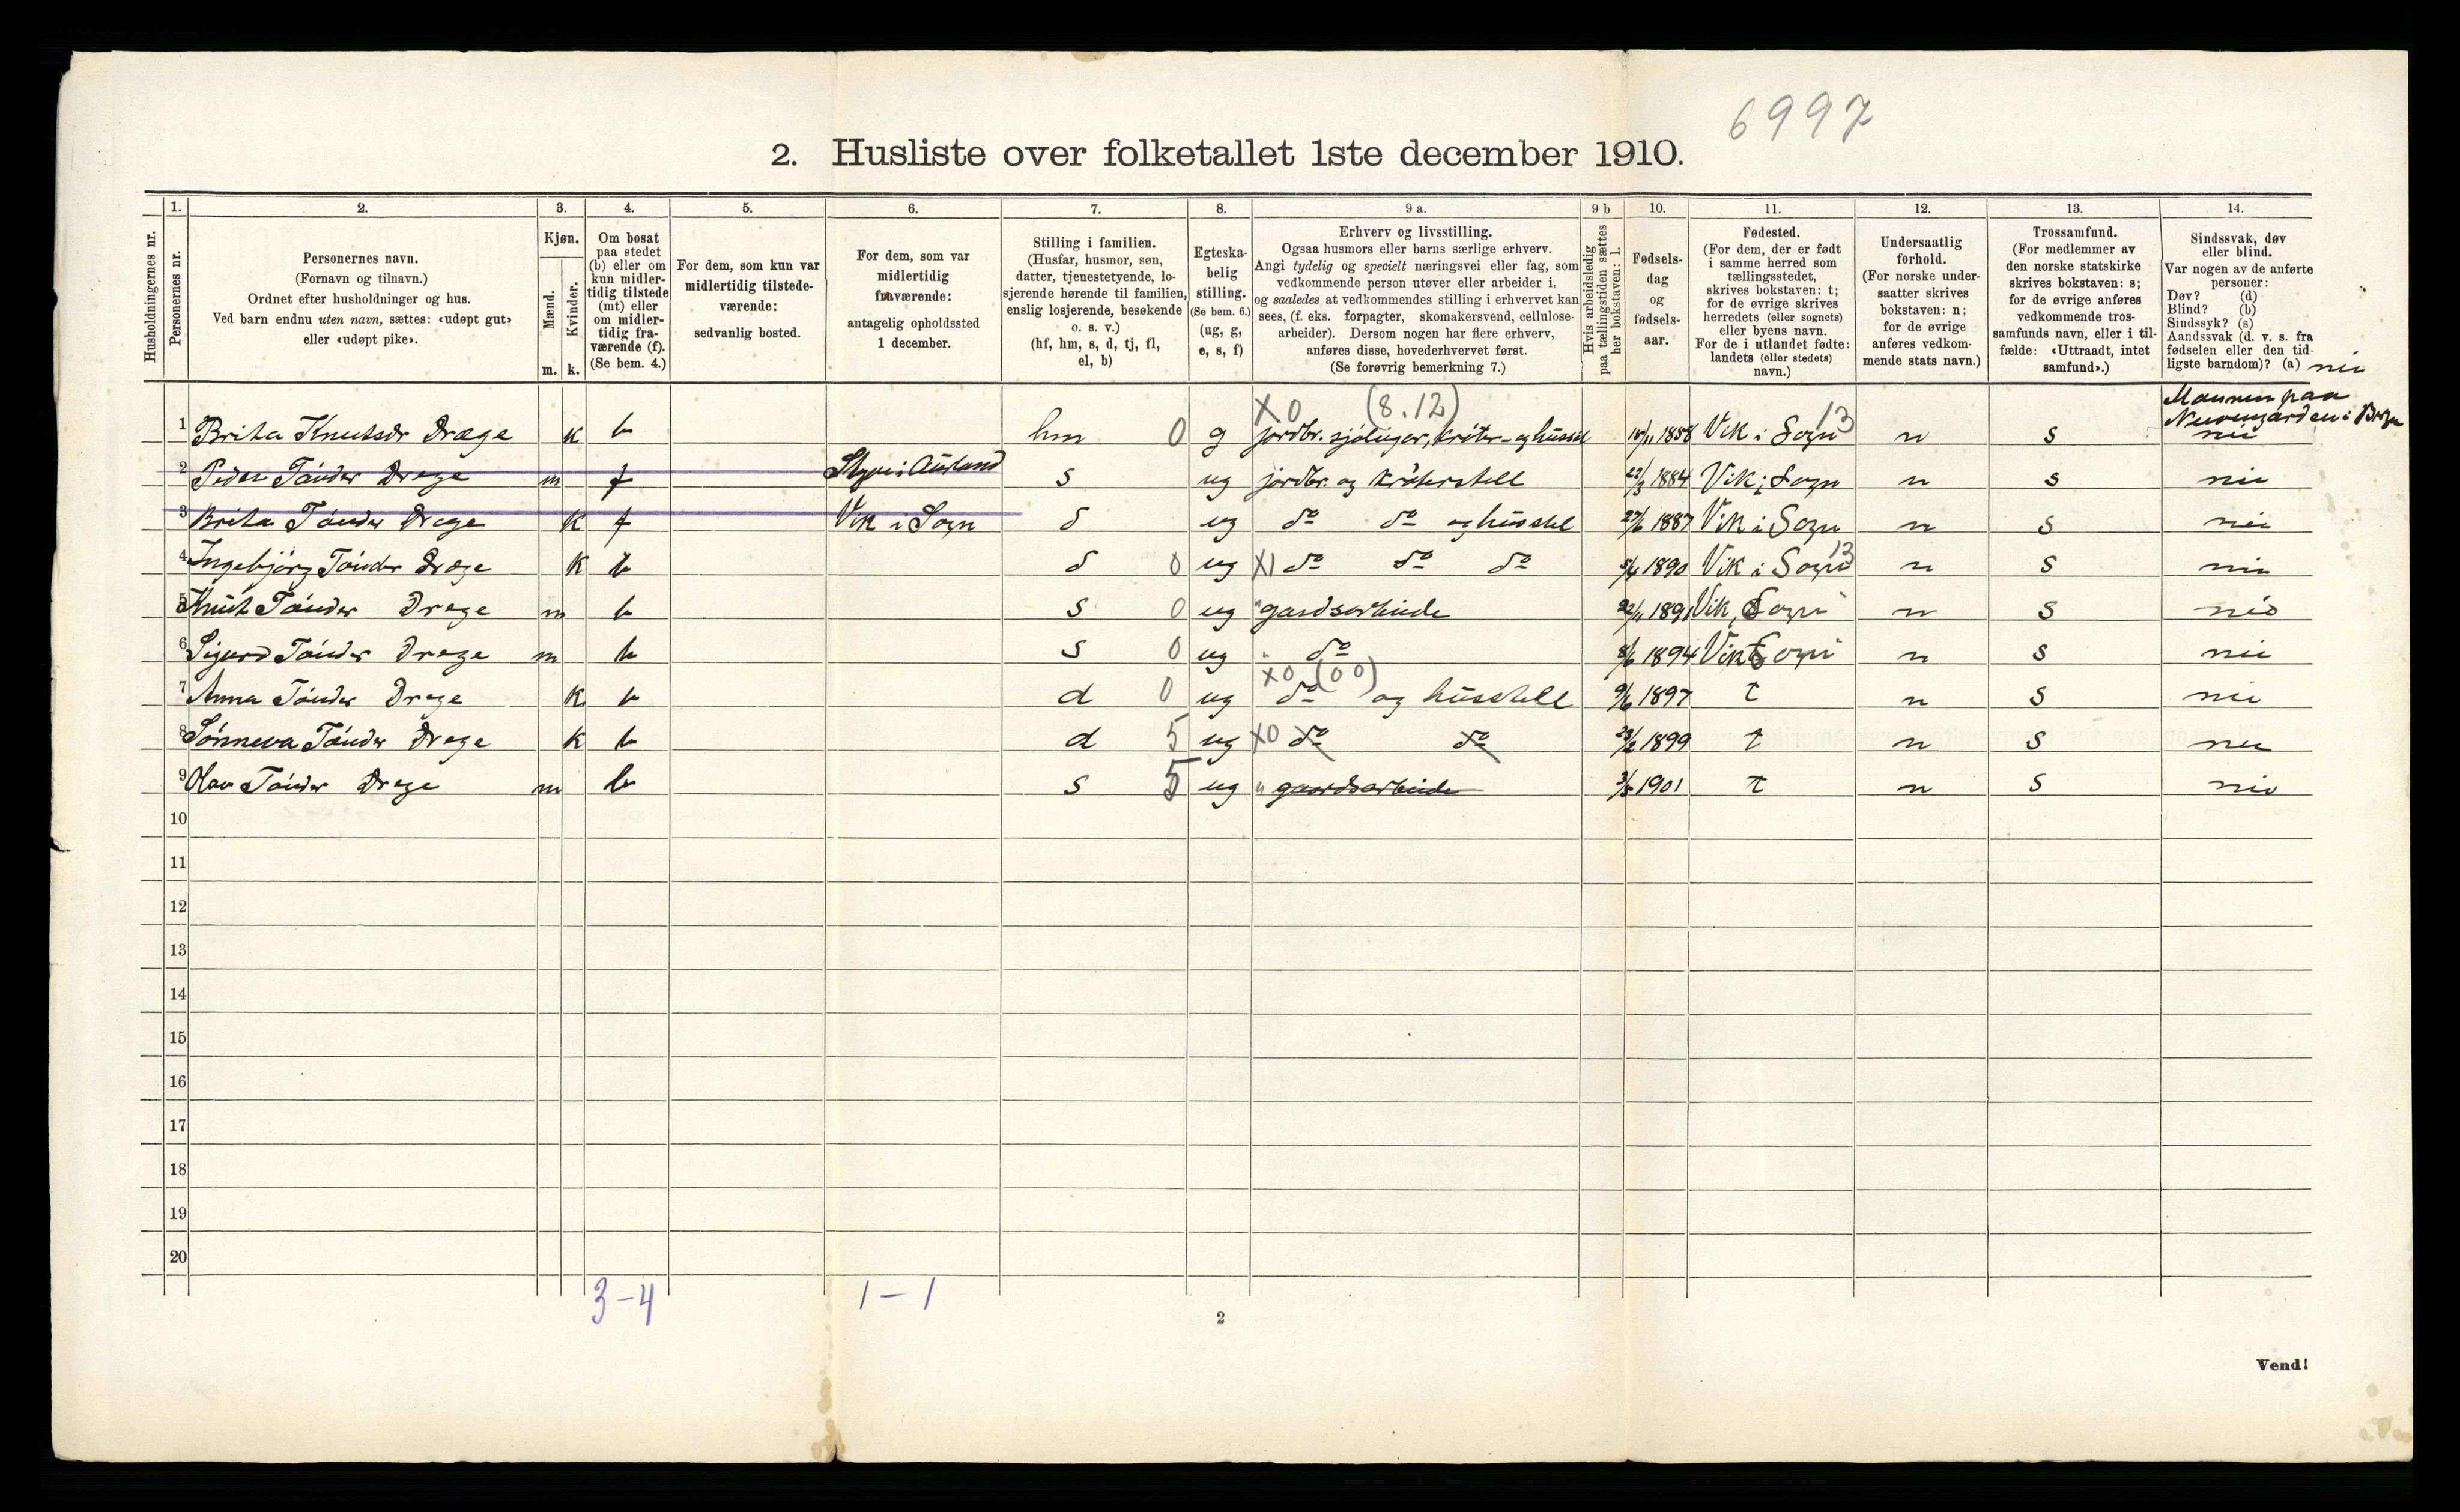 6997
2. Husliste over folketallet 1ste december 1910.
Husholdningernes nr.
1.
Personernes nr.
2.
Personernes navn.
(Fornavn og tilnavn.)
Ordnet efter husholdninger og hus.
Ved barn endnu uten navn, sættes: «udøpt gut»
eller «udøpt pike».
3.
Kjøn.
Mænd.
Kvinder.
m. k.
4.
Om bosat
paa stedet
(b) eller om
kun midler-
tidig tilstede
(mt) eller
om midler-
tidig fra-
værende (f).
(Se bem. 4.)
5.
For dem, som kun var
midlertidig tilstede-
værende:
sedvanlig bosted.
6.
For dem, som var
midlertidig
fraværende:
antagelig opholdssted
1 december.
7.
Stilling i familien.
(Husfar, husmor, søn,
datter, tjenestetyende, lo-
sjerende hørende til familien,
enslig losjerende, besøkende
o. s. v.)
(hf, hm, s, d, tj, fl,
el, b)
8.
Egteska-
belig
stilling.
(Se bem. 6.)
(ug, g,
e, s, f)
9 a.
Erhverv og livsstilling.
Ogsaa husmors eller barns særlige erhverv.
Angi tydelig og specielt næringsvei eller fag, som
vedkommende person utøver eller arbeider i,
og saaledes at vedkommendes stilling i erhvervet kan
sees, (f. eks. forpagter, skomakersvend, cellulose-
arbeider). Dersom nogen har flere erhverv,
anføres disse, hovederhvervet først.
(Se forøvrig bemerkning 7.)
9 b
Hvis arbeidsledig
paa tællingstiden sættes
her bokstaven: l.
10.
Fødsels-
dag
og
fødsels-
aar.
11.
Fødested.
(For dem, der er født
i samme herred som
tællingsstedet,
skrives bokstaven: t;
for de øvrige skrives
herredets (eller sognets)
eller byens navn.
For de i utlandet fødte:
landets (eller stedets)
navn.)
12.
Undersaatlig
forhold.
(For norske under-
saatter skrives
bokstaven: n;
for de øvrige
anføres vedkom-
mende stats navn.)
13.
Trossamfund.
(For medlemmer av
den norske statskirke
skrives bokstaven: s;
for de øvrige anføres
vedkommende tros-
samfunds navn, eller i til-
fælde: «Uttraadt, intet
samfund».)
14.
Sindssvak, døv
eller blind.
Var nogen av de anførte
personer:
Døv? (d)
Blind? (b)
Sindssyk? (s)
Aandssvak (d. v. s. fra
fødselen eller den tid-
ligste barndom)? (a) nei
Mannen paa
i Bergen
X0 (8.12) 13
1 Brita Knutsdr Dræge k b hm 0 g jordbr. sjølveger, krøter- og husstel 1858 Vik i Sogn n s nei
2 Peder Tønder Drege m f Styvi i Aurland s ug jordbr. og krøterstell 22/3 1884 Vik i Sogn n s nei
3 Brita Tønder Drege k f Vik i Sogn d ug do do og husstel 27/6 1887 Vik i Sogn n s nei
4 Ingebjørg Tønder Dræge k b d 0 ug X1 do do do 5/4 1890 Vik i Sogn 13 n s nei
5 Knut Tønder Drege m b s 0 ug " gardsarbeide 22/11 1891 Vik, Sogn n s nei
6 Sigurd Tønder Drege m b s 0 ug " do 8/6 1894 Vik Sogn n s nei
X0 (00)
7 Anna Tønder Drege k b d 0 ug do og husstell 9/6 1897 t n s nei
8 Sønneva Tønder Drege k b d 5 ug X0 do do 23/2 1899 t n s nei
9 Olav Tønder Drege m b s 5 ug " gaardsarbeide 3/5 1901 t n s nei
10
11
12
13
14
15
16
17
18
19
20
3-4 1-1
2
Vend!